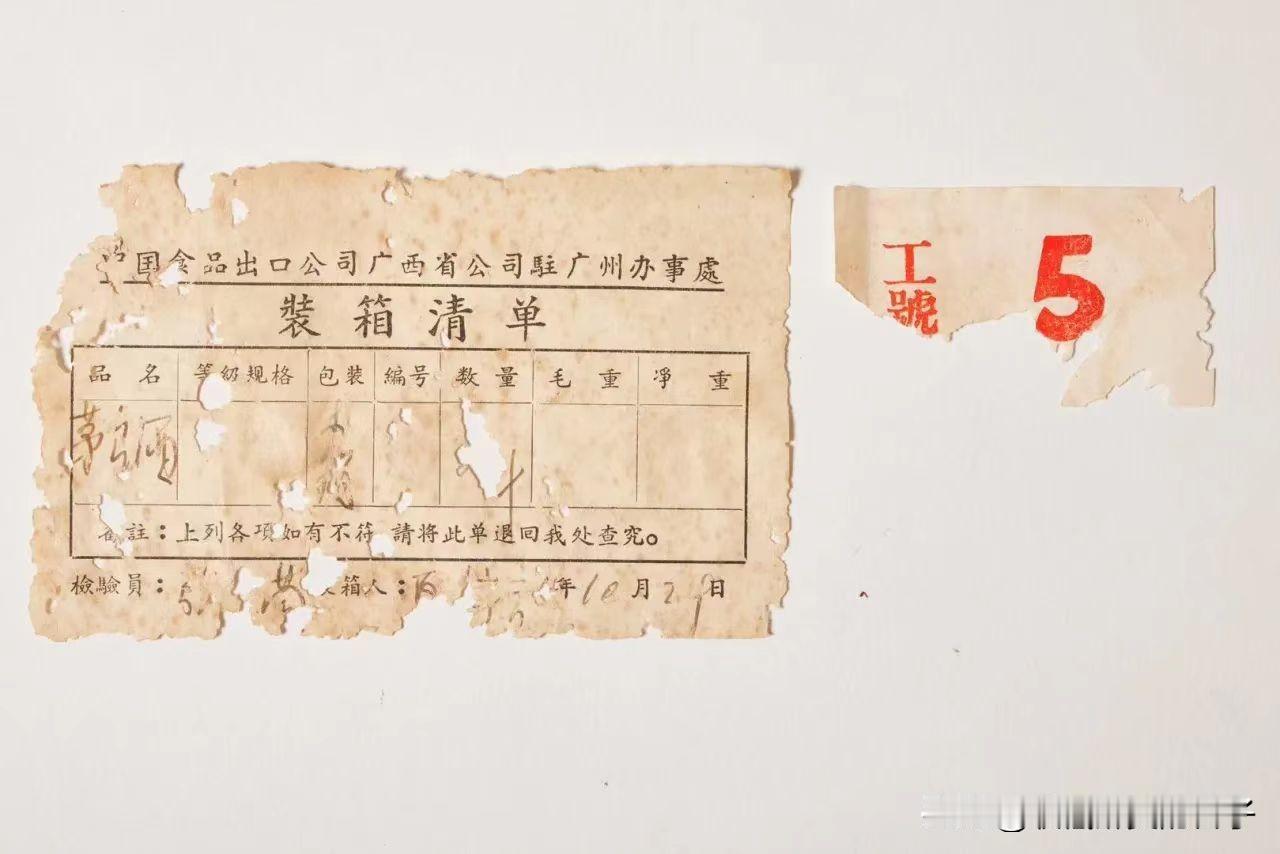 国食品出口公司广西省公司駐广州办事處
裝箱清单
品名 等级规格 包装 编号 数量 毛重 净重
茅台酒 木
备註：上列各項如有不符 請将此单退回我处查究。
檢驗員： 箱人： 年10月29日
工號 5